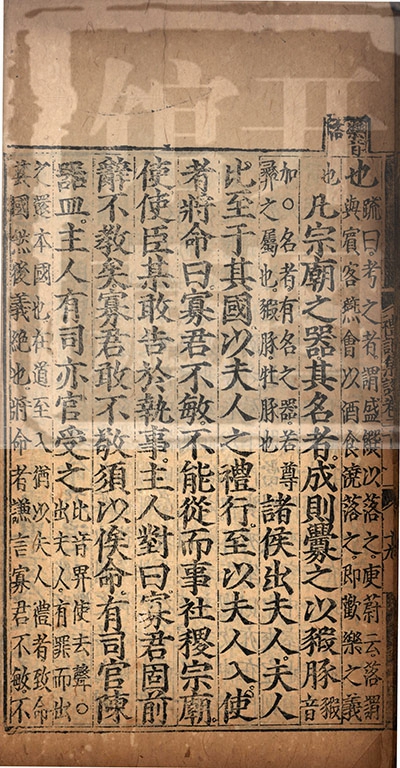 樂音洛
禮記集說卷
也疏曰。考之者謂盛饌以落之。庾蔚云落謂
與賓客燕會以酒食澆落之。即歡樂之義
也凡宗廟之器其名者。成則釁之以豭豚豭音
加。名者有名之器。若尊
彝之屬也。豭豚牡豚也諸侯出夫人。夫人
比至于其國以夫人之禮行。至以夫人入。使
者將命曰。寡君不敏。不能從而事社稷宗廟。
使使臣某敢告於執事主人對曰寡君固前
辭不教矣。寡君敢不敬須以俟命。有司官陳
器皿。主人有司亦官受之比音界使去聲。
出夫人。有罪而出
之還本國也在道至入猶以夫人禮者致命
其國然後義絶也將命者謙言寡君不敏不